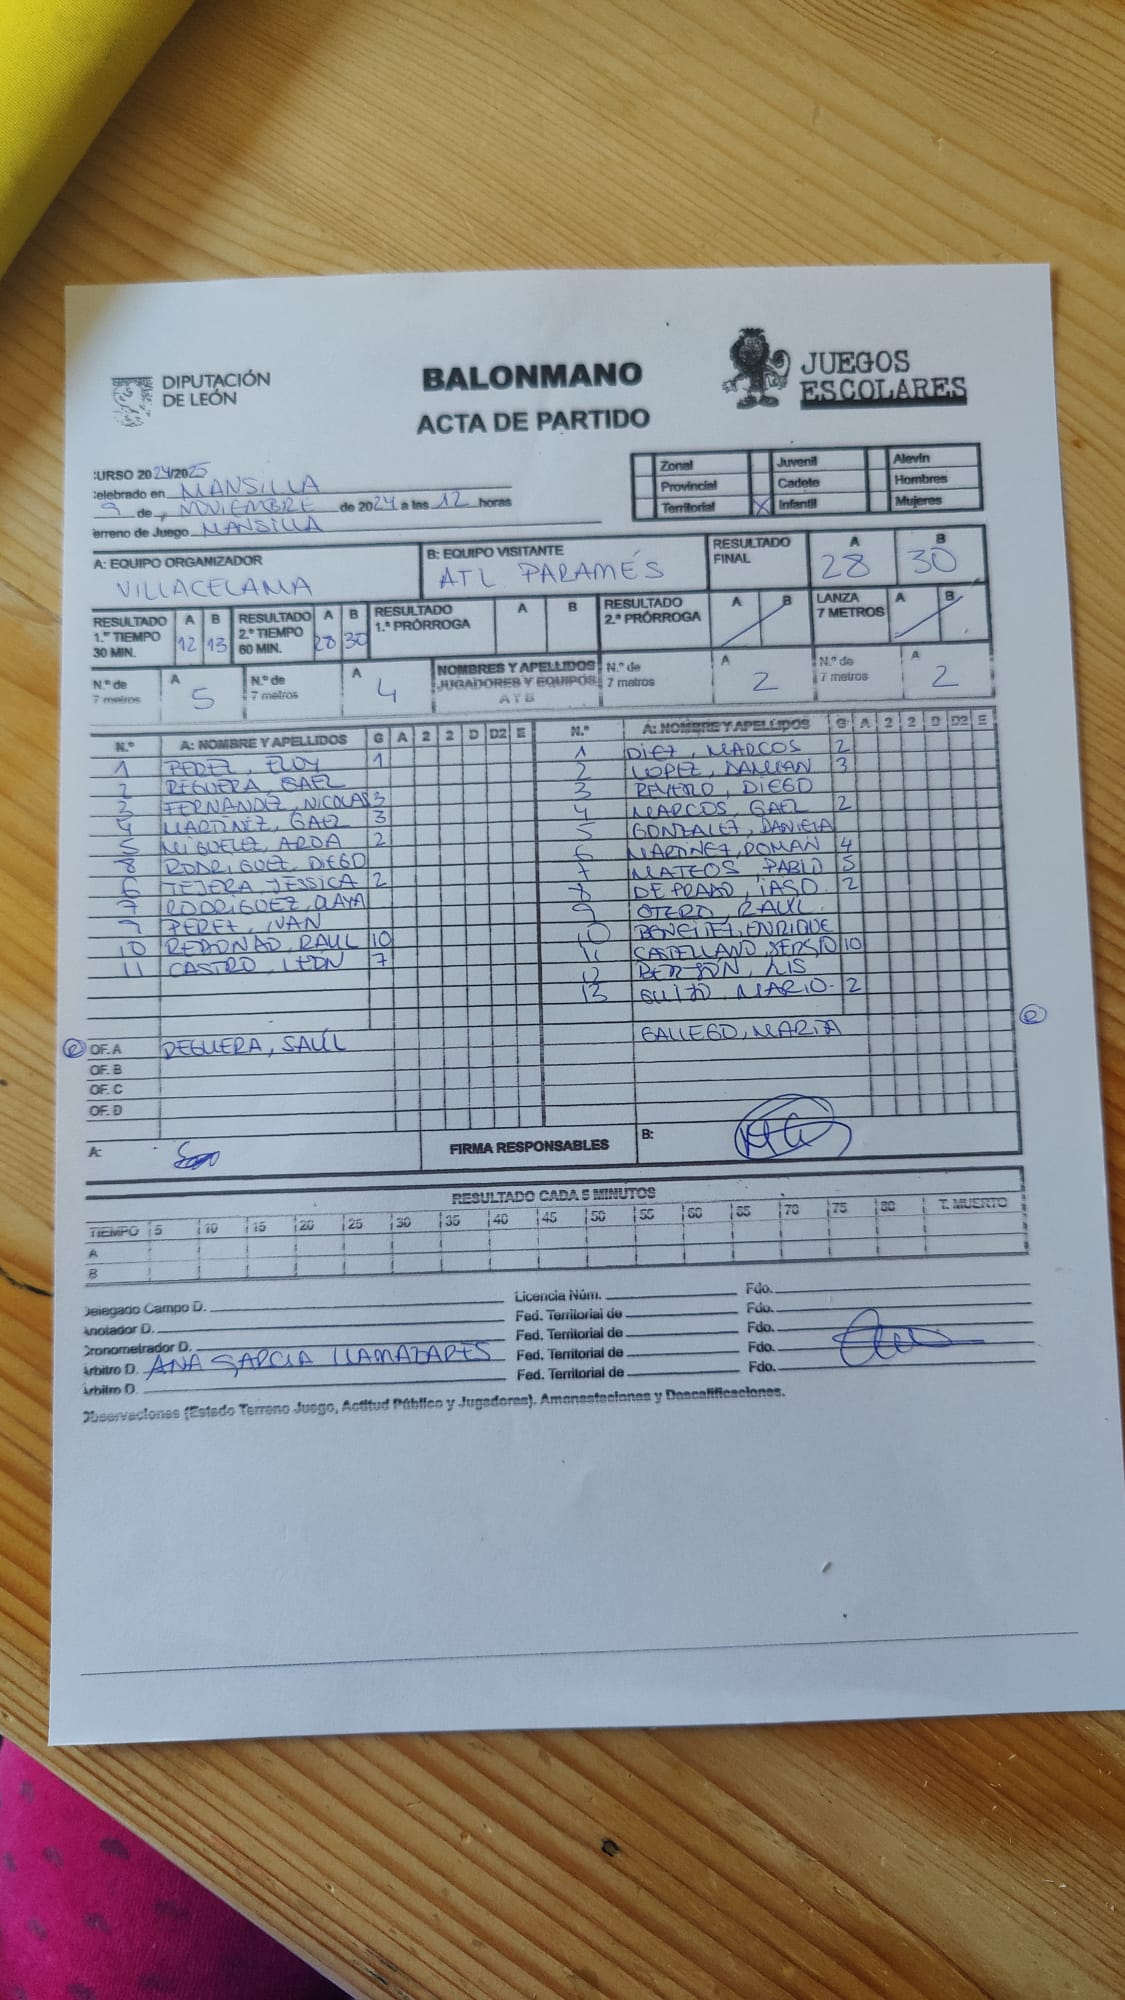 DIPUTACIÓN
DE LEÓN
BALONMANO
ACTA DE PARTIDO
JUEGOS
ESCOLARES
CURSO 2024/2025
Celebrado en MANSILLA
9 de NOVIEMBRE de 2024 a las 12 horas
Terreno de Juego MANSILLA
Zonal Juvenil Alevín
Provincial Cadete Hombres
Territorial X Infantil Mujeres
A: EQUIPO ORGANIZADOR B: EQUIPO VISITANTE RESULTADO FINAL A B
VILLACELAMA ATL PARAMÉS 28 30
RESULTADO 1.er TIEMPO 30 MIN. A 12 B 13 RESULTADO 2.º TIEMPO 60 MIN. A 28 B 30 RESULTADO 1.ª PRÓRROGA A B RESULTADO 2.ª PRÓRROGA A B LANZA 7 METROS A B
N.º de 7 metros A 5 N.º de 7 metros A 4 NOMBRES Y APELLIDOS JUGADORES Y EQUIPOS A Y B N.º de 7 metros A 2 N.º de 7 metros A 2
N.º A: NOMBRE Y APELLIDOS G A 2 2 D D2 E N.º A: NOMBRE Y APELLIDOS G A 2 2 D D2 E
1 PEREZ, ELOY 1 1 DIEZ, MARCOS 2
2 REGUERA, GAEL 2 LOPEZ, DAMIAN 3
3 FERNANDEZ, NICOLAS 3 3 DIEGO
4 MARTINEZ, GAEL 3 4 MARCOS, GAEL 2
5 MIGUELEZ, AROA 2 5 GONZALEZ, DANIELA
8 RODRIGUEZ, DIEGO 6 MARTINEZ, ROMAN 4
6 TEJERA, JESSICA 2 7 MATEOS, PABLO 5
7 RODRIGUEZ, OLAYA 8 DE PRADO, IASO 2
9 PEREZ, IVAN 9 OTERO, RAUL
10 REDONDO, RAUL 10 10 ENRIQUE
11 CASTRO, LEON 7 11 CASTELLANO, SERGIO 10
12
13 MARIO 2
R OF. A REGUERA, SAÚL GALLEGO, MARTA R
OF. B
OF. C
OF. D
A: FIRMA RESPONSABLES B:
RESULTADO CADA 5 MINUTOS
TIEMPO 5 10 15 20 25 30 35 40 45 50 55 60 65 70 75 80 T. MUERTO
A
B
Delegado Campo D. Licencia Núm. Fdo.
Anotador D. Fed. Territorial de Fdo.
Cronometrador D. Fed. Territorial de Fdo.
Arbitro D. ANA GARCIA LLAMAZARES Fed. Territorial de Fdo.
Arbitro D. Fed. Territorial de Fdo.
Observaciones (Estado Terreno Juego, Actitud Público y Jugadores). Amonestaciones y Descalificaciones.